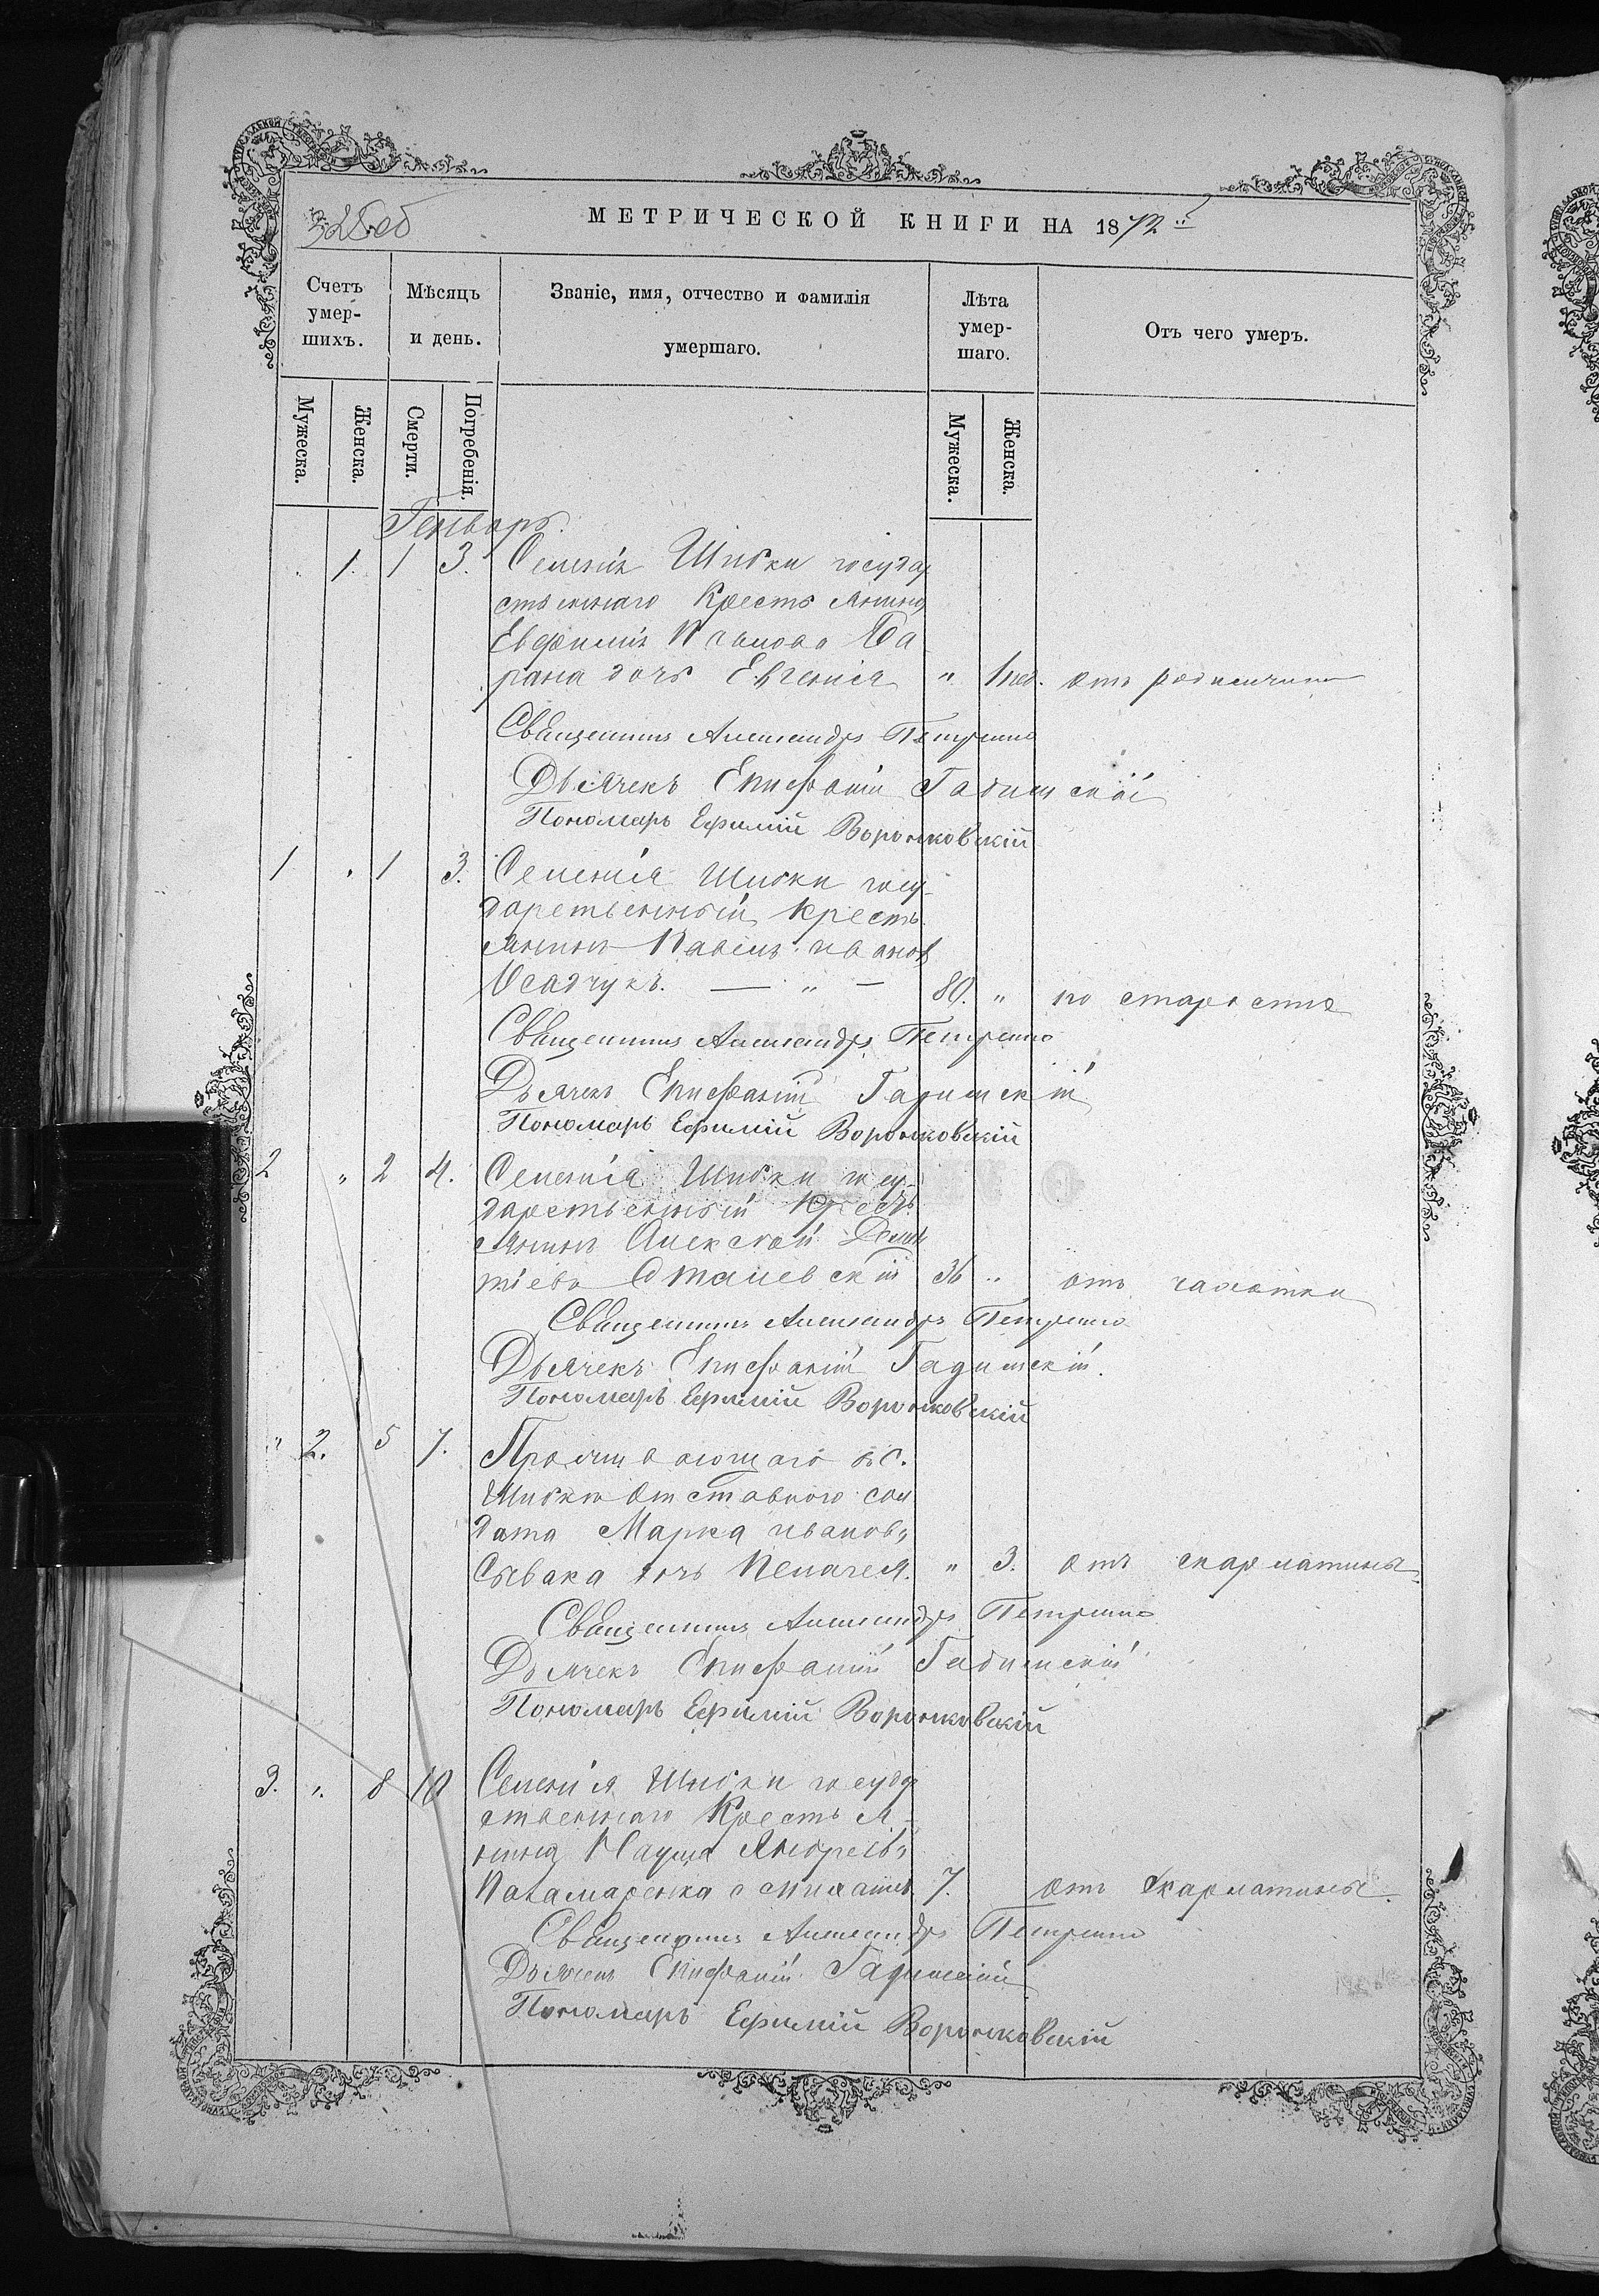 МЕТРИЧЕСКОЙ КНИГИ НА 1872
Счетъ умер-шихъ.
Мѣсяцъ и день.
Званіе, имя, отчество и фамилія умершаго.
Лѣта умер-шаго.
Отъ чего умеръ.
Мужеска. Женска. Смерти. Погребенія. Мужеска. Женска.
Генварь.
1. 1 3. Селенія Шибки государ
ственнаго Крестьянина
Евфимія Ба
рана дочь Евгенія " 1 нед. отъ родимчика
Священникъ Александръ
Дьячекъ Епифаній
Пономарь Ефимій Воронковскій
1 " 1 3. Селенія Шибки госу-
дарственный Кресть
янинъ Павелъ Иванов
Осадчукъ. — " — 80. " по старости
Священникъ Александръ
Дьячекъ Епифаній
Пономарь Ефимій Воронковскій
2 " 2 4. Селенія Шибки госу-
дарственный Кресть
янинъ Алексѣй Демен
тіевъ 36 " отъ чахотки
Священникъ Александръ
Дьячекъ Епифаній
Пономарь Ефимій Воронковскій
" 2. 5 7. Проживающаго в С.
Шибкѣ отставного сол
дата Марка Иванов
Сывака дочь Пелагея. " 3. отъ скарлатины.
Священникъ Александръ
Дьячекъ Епифаній
Пономарь Ефимій Воронковскій
3. " 8 10 Селенія Шибки госуда
ственнаго Крестья-
нина Наума Андреев
Паламаренка с 7. отъ скарлатины.
Священникъ Александръ
Дьячекъ Епифаній
Пономарь Ефимій Воронковскій